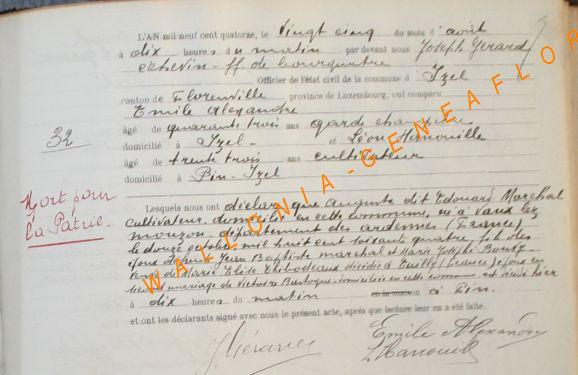 L'AN mil neuf cent quatorze, le Vingt cinq du mois d'août
à dix heures du matin par devant nous Joseph Gérard
échevin - ff de bourgmestre
Officier de l'état civil de la commune d' Izel
canton de Florenville province de Luxembourg, ont comparu
Emile Alexandre
âgé de quarante trois ans garde champêtre
domicilié à Izel et Léon Hanouille
âgé de trente trois ans cultivateur
domicilié à Pin-Izel
32
Mort pour
la Patrie.
Lesquels nous ont déclaré que Auguste dit Edouard Marchal
cultivateur, domicilié en cette commune, né à Vaux lez
mouzon, département des ardennes (France)
le douze octobre mil huit cent soixante quatre, fils des
époux Jean Baptiste marchal et Marie Joseph
veuf de Marie Elise décédée à (France) époux en
mariage de Victoire domiciliée en cette commune est décédé hier
à dix heures du matin en la maison à Pin.
et ont les déclarants signé avec nous le présent acte, après que lecture leur en a été faite.
J. Gérard
Emile Alexandre
L. Hanouille
WALLONIA-GENEAFLOR